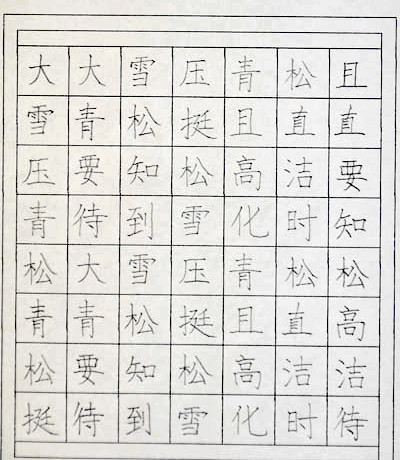 大大雪压青松且
雪青松挺且直直
压要知松高洁要
青待到雪化时知
松大雪压青松松
青青松挺且直高
松要知松高洁洁
挺待到雪化时待